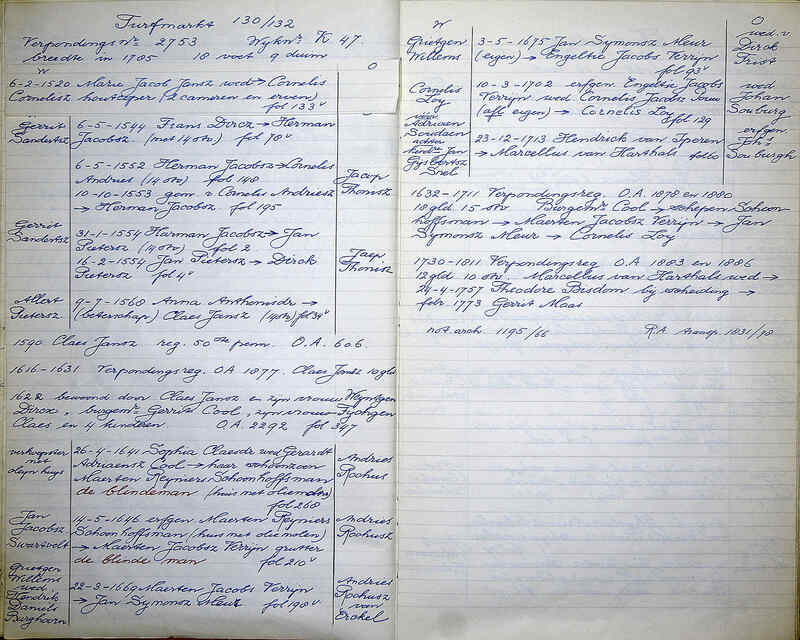 Turfmarkt 130/132
Verpondings no 2753 Wijkno K 47.
breedte in 1785 18 voet 9 duim
W
O
6-2-1520 Marie Jacob Jansz wed → Cornelis
Cornelisz houtcoper (2 cameren en erven)
fol 133v
Gerrit
Sandertsz
6-5-1544 Frans Dircx → Herman
Jacobsz. (met 14 stv) fol 78v
6-5-1552 Herman Jacobsz → Cornelis
Andries (14 stv) fol 148
10-10-1553 gem v Cornelis Andriesz
→ Herman Jacobsz. fol 195
Jacop
Thonisz
Gerrit
Sandertsz
31-1-1554 Harman Jacobsz → Jan
Pietersz (14 stv) fol 2
16-2-1554 Jan Pietersz → Dirck
Pietersz fol 4v
Jaep
Thonisz
Allert
Pietersz
9-7-1568 Anna Anthonisdr →
(beterschap) Claes Jansz (14 stv) fol 34v
1590 Claes Jansz reg. 50ste penn. O.A. 606.
1616-1631 Verpondingsreg. OA 1877. Claes Jansz 10 gld
1622 bewoond door Claes Jansz en zijn vrouw Weyntgen
Dircx, burgemr Gerrit Cool, zijn vrouw Fychgen
Claes en 4 kinderen O.A. 2292 fol 347
verkoopster
met
oleyn huys
26-4-1641 Sophia Claesdr wed Gerardt
Adriaensz Cool → haar schoonzoon
Maerten Reyniers Schoonhoffsman
de blindeman (huis met oliemolen)
fol 268
Andries
Rochus
Jan
Jacobsz
Swartvelt
14-5-1646 erfgen Maerten Reyniers
Schoonhoffsman (huis met oliemolen)
→ Maerten Jacobsz Terrijn grutter
de blinde man fol 210v
Andries
Rochusz
Grietgen
Willems
wed.
Hendrik
Daniels
Burghoorn
22-3-1669 Maerten Jacobs Terrijn
→ Jan Symonsz Meur fol 198v
Andries
Rochusz
van
Crakel
W
O
Grietgen
Willems
3-5-1675 Jan Symonsz Meur
(eigen) → Engeltie Jacobs Terrijn
fol 93v
wed. v.
Dirck
Trist
Cornelis
Loy
10-3-1702 erfgen Engeltie Jacobs
Terrijn wed Cornelis Jacobs
(afl eigen) → Cornelis Loy
fol 129
wed
Johan
Sonburg
Adriaen
Boudaen
achter
Jan
Gijsbertsz
Snel
23-12-1713 Hendrick van Iperen
→ Marcellus van Harthals fol 60
erfgen.
Johs
Sonburgh
1632-1711 Verpondingsreg. O.A. 1878 en 1880
18 gld. 15 stv Burgemr Cool → schepen Schoon
hoffsman → Maerten Jacobsz Terrijn → Jan
Symonsz Meur → Cornelis Loy
1730-1811 Verpondingsreg O.A 1883 en 1886
12 gld 10 stv. Marcellus van Harthals wed →
24-4-1757 Theodore Bisdom bij scheiding →
febr 1773 Gerrit Maas
not. arch. 1195/66 R.A. 1831/98